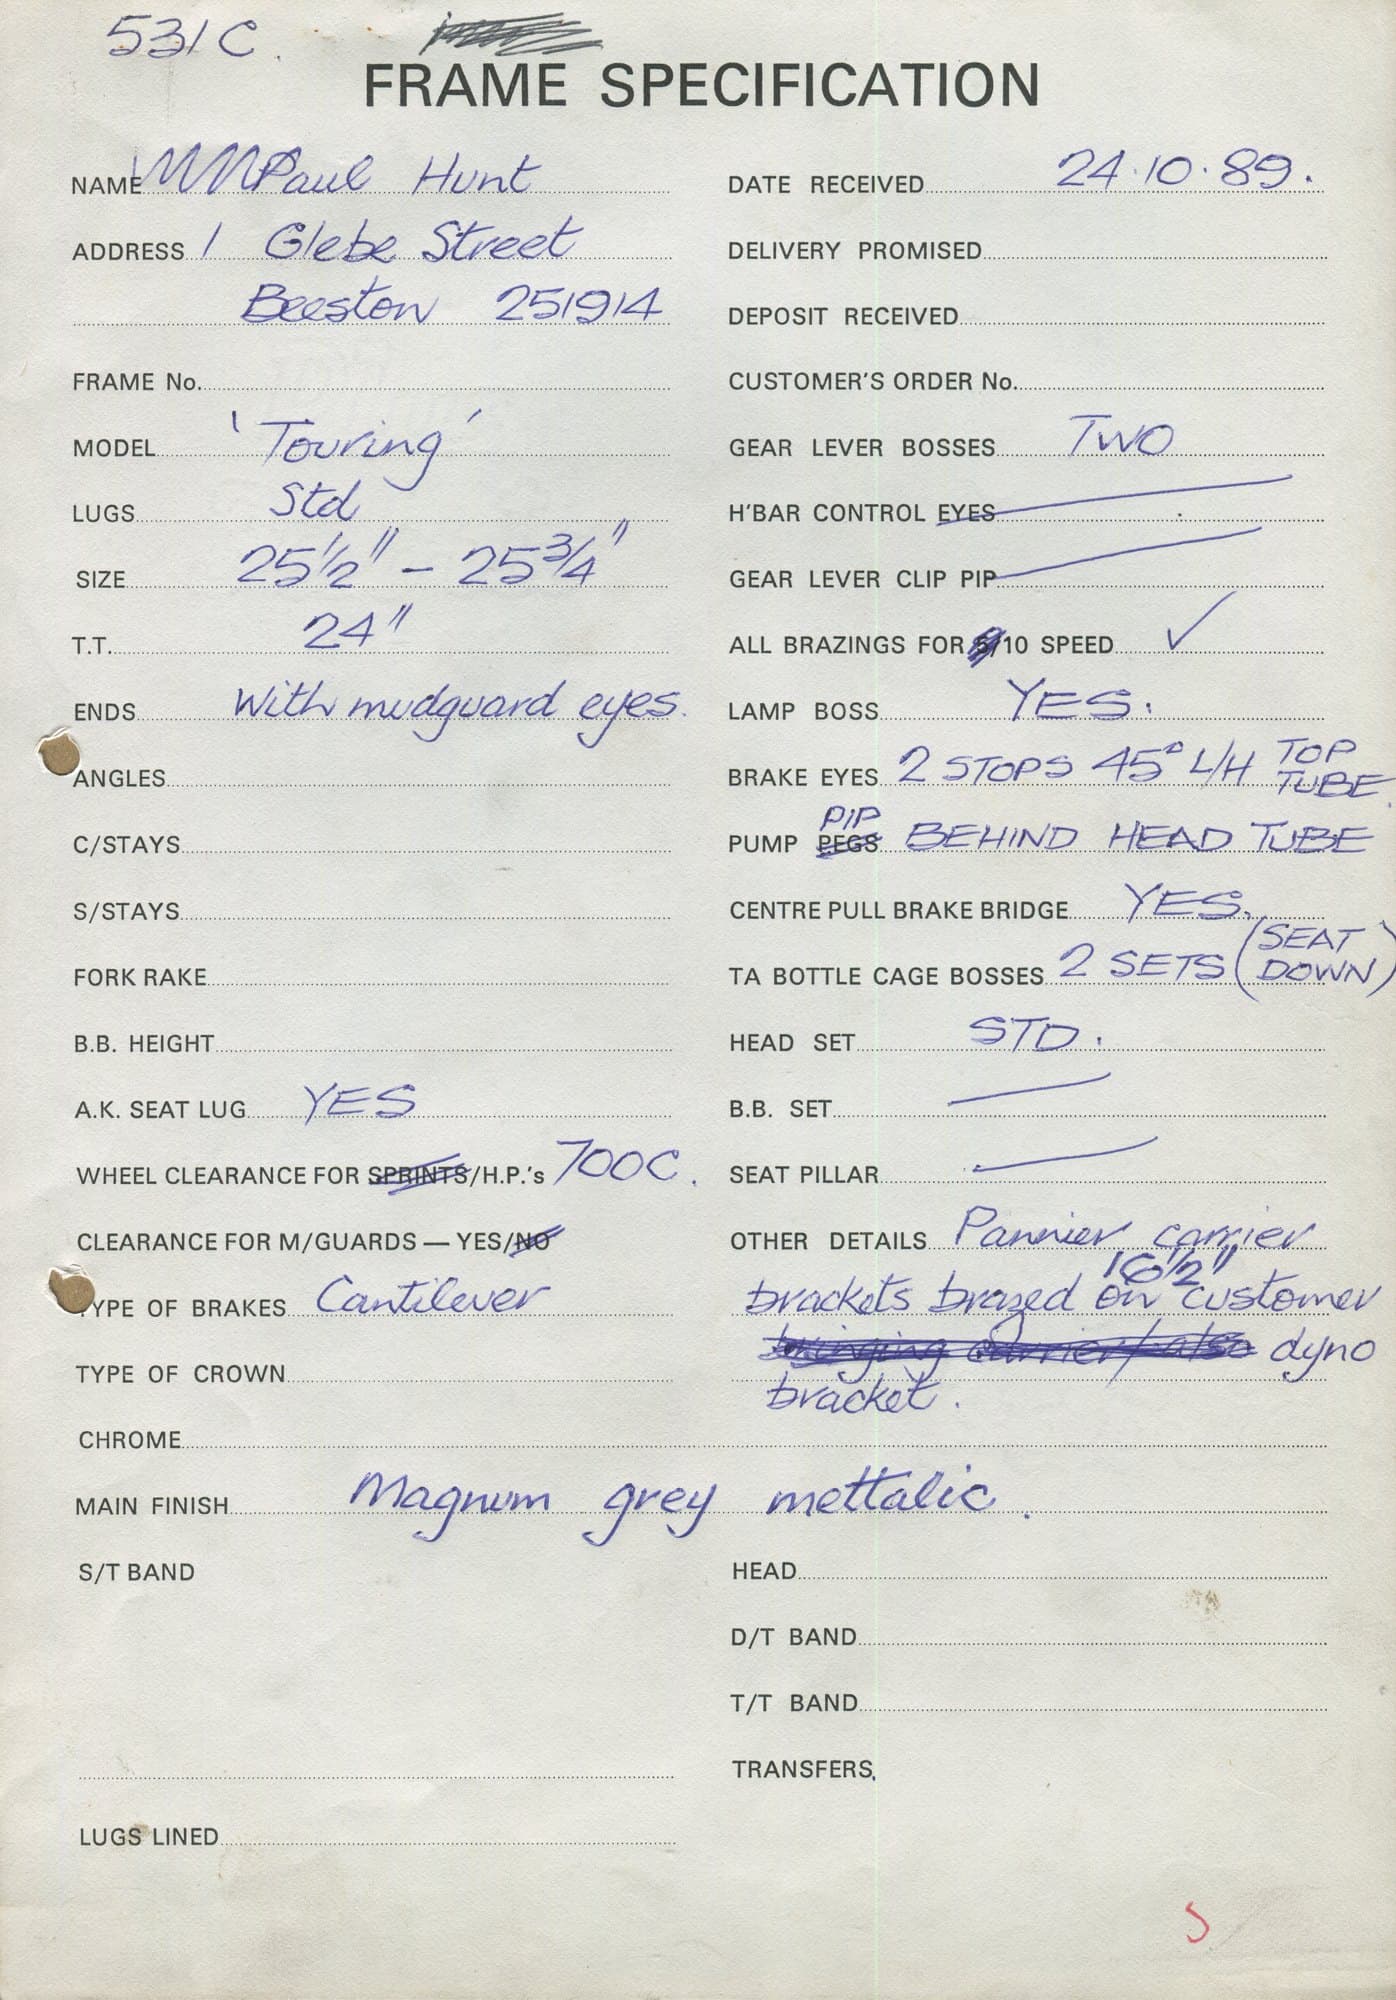 531C.
FRAME SPECIFICATION
NAME Paul Hunt
ADDRESS 1 Glebe Street
Beeston 251914
FRAME No.
MODEL 'Touring'
LUGS Std
SIZE 25 1/2" - 25 3/4"
T.T. 24"
ENDS With mudguard eyes.
ANGLES
C/STAYS
S/STAYS
FORK RAKE
B.B. HEIGHT
A.K. SEAT LUG YES
WHEEL CLEARANCE FOR SPRINTS/H.P.'s 700C.
CLEARANCE FOR M/GUARDS — YES/NO
TYPE OF BRAKES Cantilever
TYPE OF CROWN
CHROME
MAIN FINISH Magnum grey mettalic.
S/T BAND
LUGS LINED
DATE RECEIVED 24.10.89.
DELIVERY PROMISED
DEPOSIT RECEIVED
CUSTOMER'S ORDER No.
GEAR LEVER BOSSES TWO
H'BAR CONTROL EYES
GEAR LEVER CLIP PIP
ALL BRAZINGS FOR 5/10 SPEED ✓
LAMP BOSS YES.
BRAKE EYES 2 STOPS 45° L/H TOP
TUBE.
PIP
PUMP PEGS BEHIND HEAD TUBE
CENTRE PULL BRAKE BRIDGE YES.
TA BOTTLE CAGE BOSSES 2 SETS (SEAT
DOWN)
HEAD SET STD.
B.B. SET
SEAT PILLAR
OTHER DETAILS Pannier carrier
16 1/2"
brackets brazed on customer
bringing carrier/also dyno
bracket.
HEAD
D/T BAND
T/T BAND
TRANSFERS